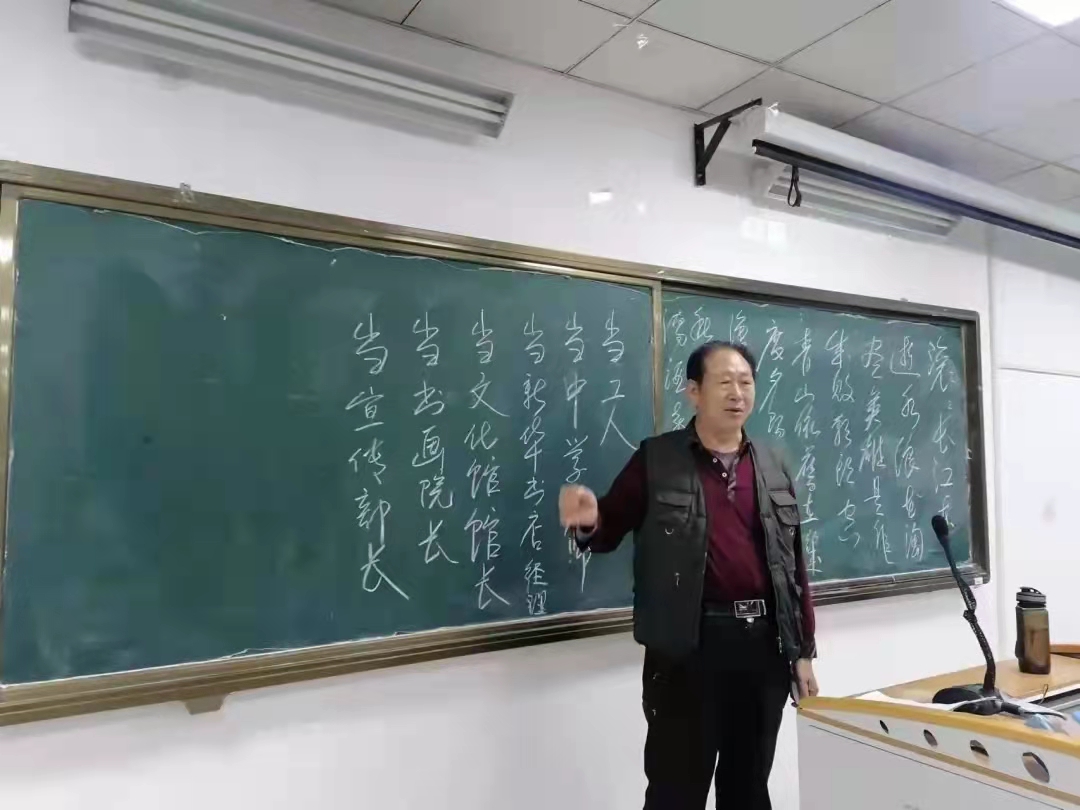 滚〻长江东
逝水浪花淘
尽英雄是非
成败转头空
青山依舊在幾
度夕阳
渔
秋
濁酒喜
当工人
当中学师
当新华书店经理
当文化馆馆长
当书画院长
当宣传部长